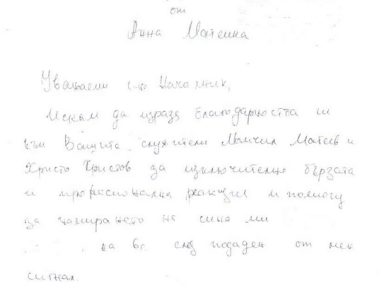 от
Анна Матеина
Уважаеми г-не Началник,
Искам да изразя благодарността си
към Вашите служители Момчил Матеев и
Христо Христов за изключително бързата
и професионална реакция и помощ
за намирането на сина ми
на ве след подаден от мен
сигнал.